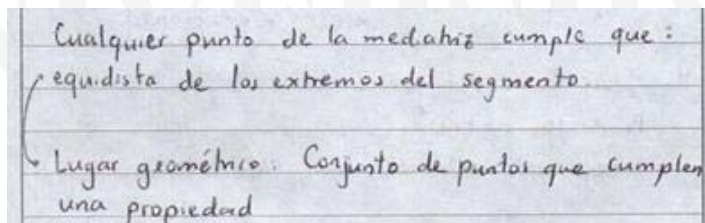 Cualquier punto de la mediatriz cumple que:
equidista de los extremos del segmento.
Lugar geométrico: Conjunto de puntos que cumplen
una propiedad